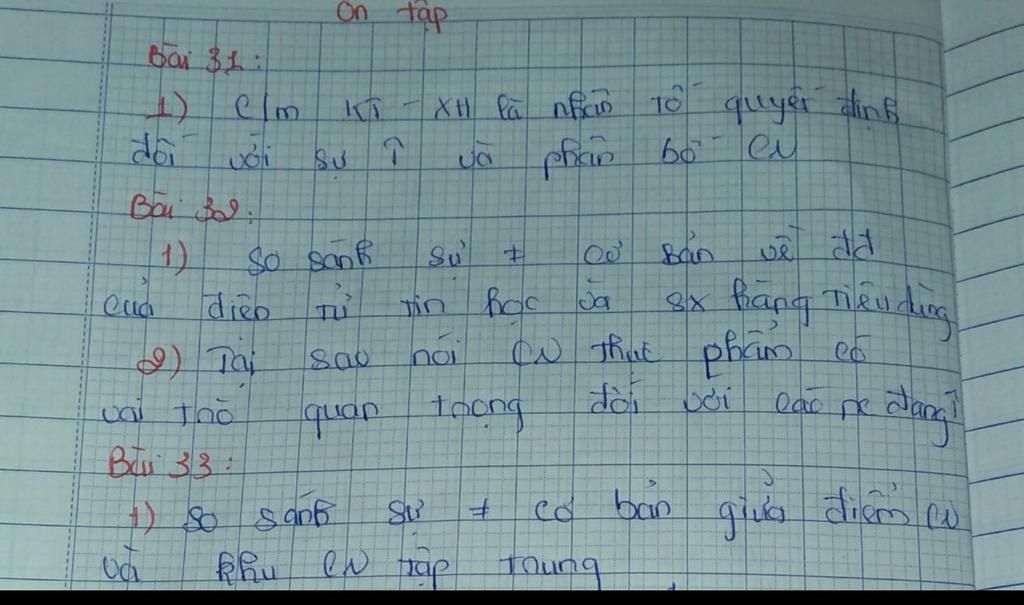 Ôn tập
Bài 31:
1) C/m KT - XH là nhân tố quyết định
đối với sự ↑ và phân bố CN
Bài 32:
1) So sánh sự ≠ cơ bản về đđ
của điện tử tin học và sx hàng tiêu dùng
2) Tại sao nói CN thực phẩm có
vai trò quan trọng đối với các nc đang ↑
Bài 33:
1) So sánh sự ≠ cơ bản giữa điểm CN
và khu CN tập trung